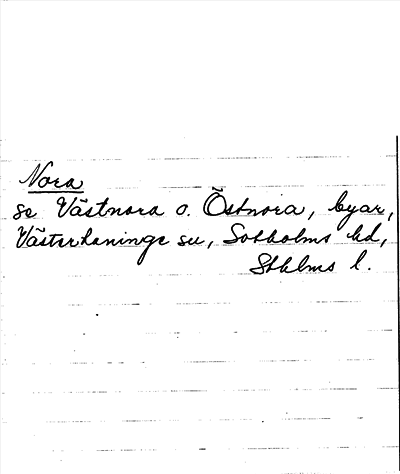 Nora
se Västnora o. Östnora, byar,
Västerhaninge sn, Sotholms hd,
Sthlms l.